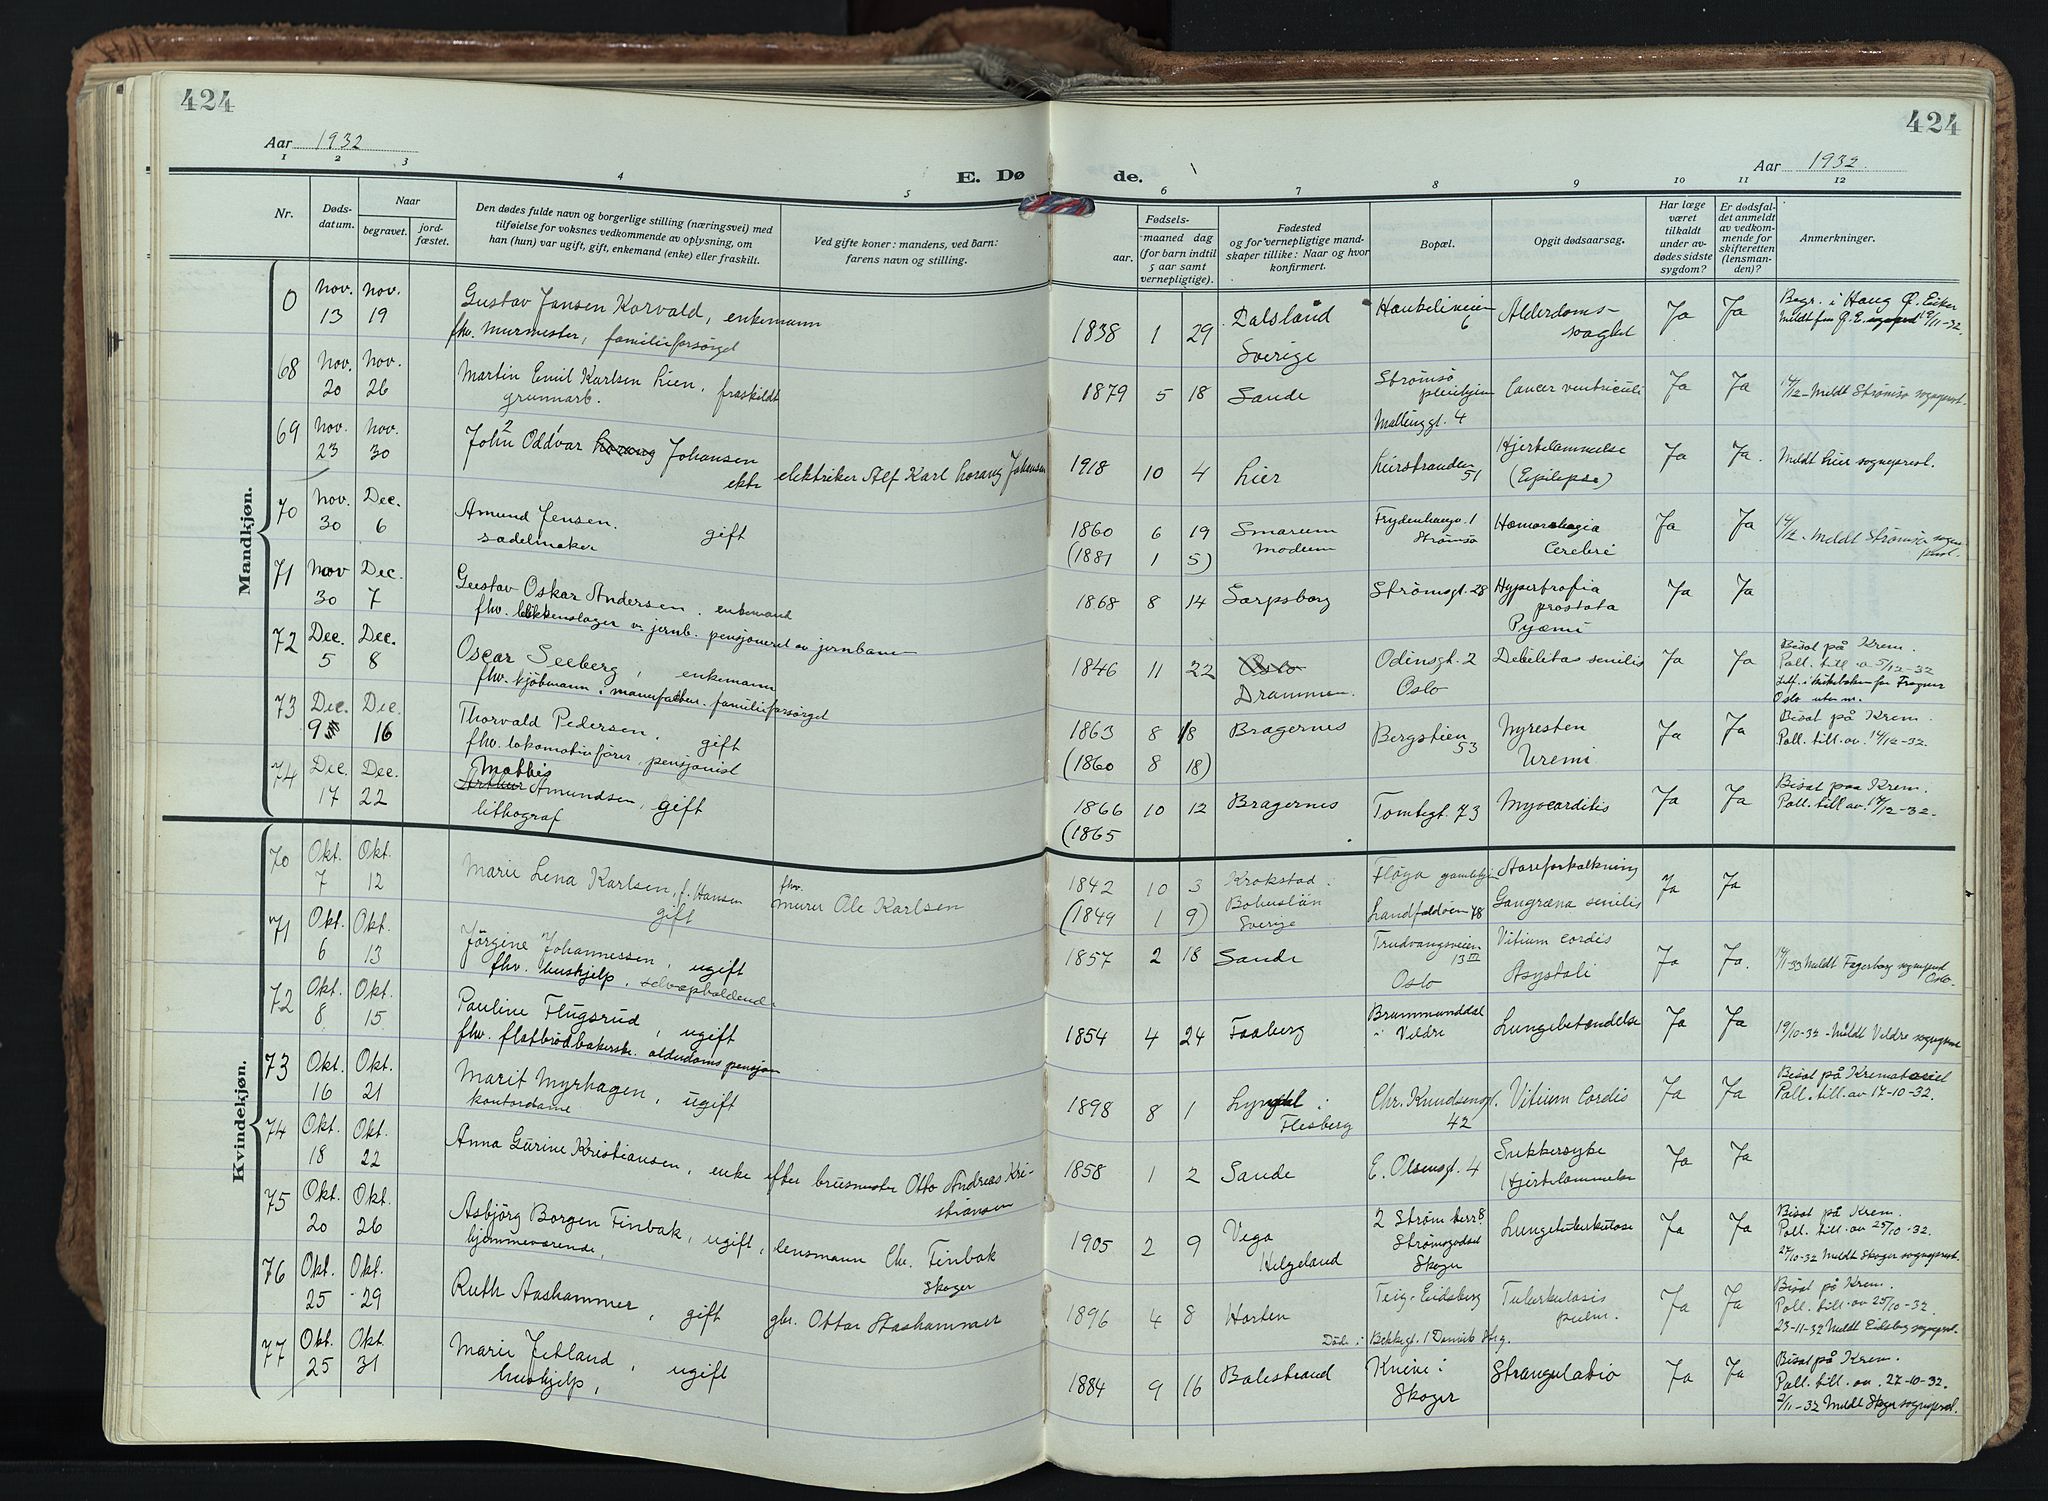 424
424
Aar 1932
Aar 1932.
E. Dø
de.
1
2
3
4
5
6
7
8
9
10
11
12
Nr.
Døds-
datum.
Naar
begravet.
jord-
fæstet.
Den dødes fulde navn og borgerlige stilling (næringsvei) med
tilføielse for voksnes vedkommende av oplysning, om
han (hun) var ugift, gift, enkemand (enke) eller fraskilt.
Ved gifte koner: mandens, ved barn:
farens navn og stilling.
Fødsels-
aar.
maaned
dag
(for barn indtil
5 aar samt
vernepligtige).
Fødested
og for vernepligtige mand-
skaper tillike: Naar og hvor
konfirmert.
Bopæl.
Opgit dødsaarsag.
Har læge
været
tilkaldt
under av-
dødes sidste
sygdom?
Er dødsfal-
det anmeldt
av vedkom-
mende for
skifteretten
(lensman-
den)?
Anmerkninger.
Mandkjøn.
0
Nov. 13
Nov. 19
Gustav Jansen Korvald, enkemann
fhv. Murmester, familieforsørget
1838 1 29
Dalsland
Sverige
Haukeliveien
6
Alderdoms-
svaghet
Ja
Ja
Begr. i Haug Ø. Eiker
68
Nov. 20
Nov. 26
Martin Emil Karlsen Lien, fraskildt
grunnarb.
1879 5 18
Sande
Strømsø
pleiehjem
Mallinggt. 4
Cancer ventriculi
Ja
Ja
14/12 - Meldt Strømsø sogneprest.
69
Nov. 23
Nov. 30
John Oddvar Lorang Johansen
ekte
elektriker Alf Karl Lorang Johansen
1918 10 4
Lier
Lierstranden
51
Hjertelammelse
(Epilepse)
Ja
Ja.
Meldt Lier sogneprest.
70
Nov. 30
Dec. 6
Amund Jensen. gift
sadelmaker
1860 6 19
(1881 1 5)
Smarum
Modum
Frydenhaugv. 1
Strømsø
Hæmorrhagia
Cerebri
Ja
Ja
14/12 - Meldt Strømsø sogne-
prest.
71
Nov 30
Dec. 7
Gustav Oskar Andersen. enkemand
fhv. blikkenslager v. jernb. pensjoneret av jernbanen
1868 8 14
Sarpsborg
Strømsgt. 28
Hypertrofia
prostata
Pyæmi
Ja
Ja
72
Dec. 5
Dec. 8
Oscar Seeberg, enkemann
fhv. kjøbmann i manufakturv. familieforsørget
1846 11 22
Oslo
Drammen.
Odinsgt. 2
Oslo
Debilitas senilis
Ja
Ja
Bisat på Krem.
Poll. till. a 5/12-32
Indf. i kirkeboken for Frogner
Oslo uten nr.
73
Dec. 9
Dec. 16
Thorvald Pedersen, gift
fhv. lokomotivfører, pensjonist
1863 8 18
(1860 8 18)
Bragernes
Bergstien
53
Nyresten
Uremi
Ja
Ja
Bisat på Krem.
Poll. till. av. 14/12-32.
74
Dec. 17
Dec. 22
Mathis
Arthur Amundsen, gift
lithograf
1866 10 12
(1865
Bragernes
Tomtegt. 73
Myocarditis
Ja
Ja
Bisat paa Krem.
Poll. till av. 19/12-32.
Kvindekjøn.
70
Okt. 7
Okt. 12
Marie Lena Karlsen, f. Hansen
gift
fhv.
murer Ole Karlsen
1842 10 3
(1849 1 9)
Krokstad
Bohuslän
Sverige
Fløya gamlehjem
Landfaldøen 78
Aareforkalkning
Gangræna senilis
Ja
Ja
71
Okt. 6
Okt. 13
Jørgine Johannessen, ugift
fhv. hushjelp, selvopholdende
1857 2 18
Sande
Trudvangsveien
13 III
Oslo
Vitium cordis
Asystoli
Ja
Ja.
Meldt Fagerborg sogneprest
Oslo.
72
Okt. 8
Okt. 15
Pauline Flugsrud, ugift
fhv. flatbrødbakerske. alderdoms pensjon
1854 4 24
Faaberg
Brummunddal
i Veldre
Lungebetændelse
Ja
Ja
19/10-32 - Meldt Veldre sogneprest
73
Okt. 16
Okt. 21
Marit Myrhagen, ugift
kontordame
1898 8 1
Lyngdal i
Flesberg
Chr. Knudsensgt.
42
Vitium Cordis
Ja
Ja
Bisat på Krematoriet
Poll. till. av 17-10-32.
74
Okt. 18
Okt. 22
Anna Gurine Kristiansen, enke efter brusmester Otto Andreas Kri-
stiansen
1858 1 2
Sande
E. Olsensgt. 4
Sukkersyke
Hjertelammelse
Ja
Ja
75
Okt. 20
Okt. 26
Asbjørg Borgen Finbak, ugift,
hjemmeværende,
lensmann Chr. Finbak
Skoger
1905 2 9
Vega
Helgeland
2 Strøm terr. 8
Strømsgodset
Skoger
Lungetuberkulose
Ja
Ja
Bisat på Krem.
Poll. till. av 25/10-32.
27/10-32 Meldt Skoger sogneprest.
76
Okt. 25
Okt. 29
Ruth Aashammer, gift
gbr. Ottar Aashammer
1896 4 8
Horten
Teig, Eidsberg
Død i Bekkegt. 1
Tuberkulosis
pulm.
Ja
Ja
Bisat på Krem.
Poll. till av 25/10-32.
23-11-32 Meldt Eidsberg sogneprest.
77
Okt. 25
Okt. 31
Marie Jetland, ugift
hushjelp,
1884 9 16
Balestrand
Knive i
Skoger
Strangulatio
Ja
Ja
Bisat på Krem.
Poll. till. av. 27-10-32.
2/11-32 Meldt Skoger sogneprest.